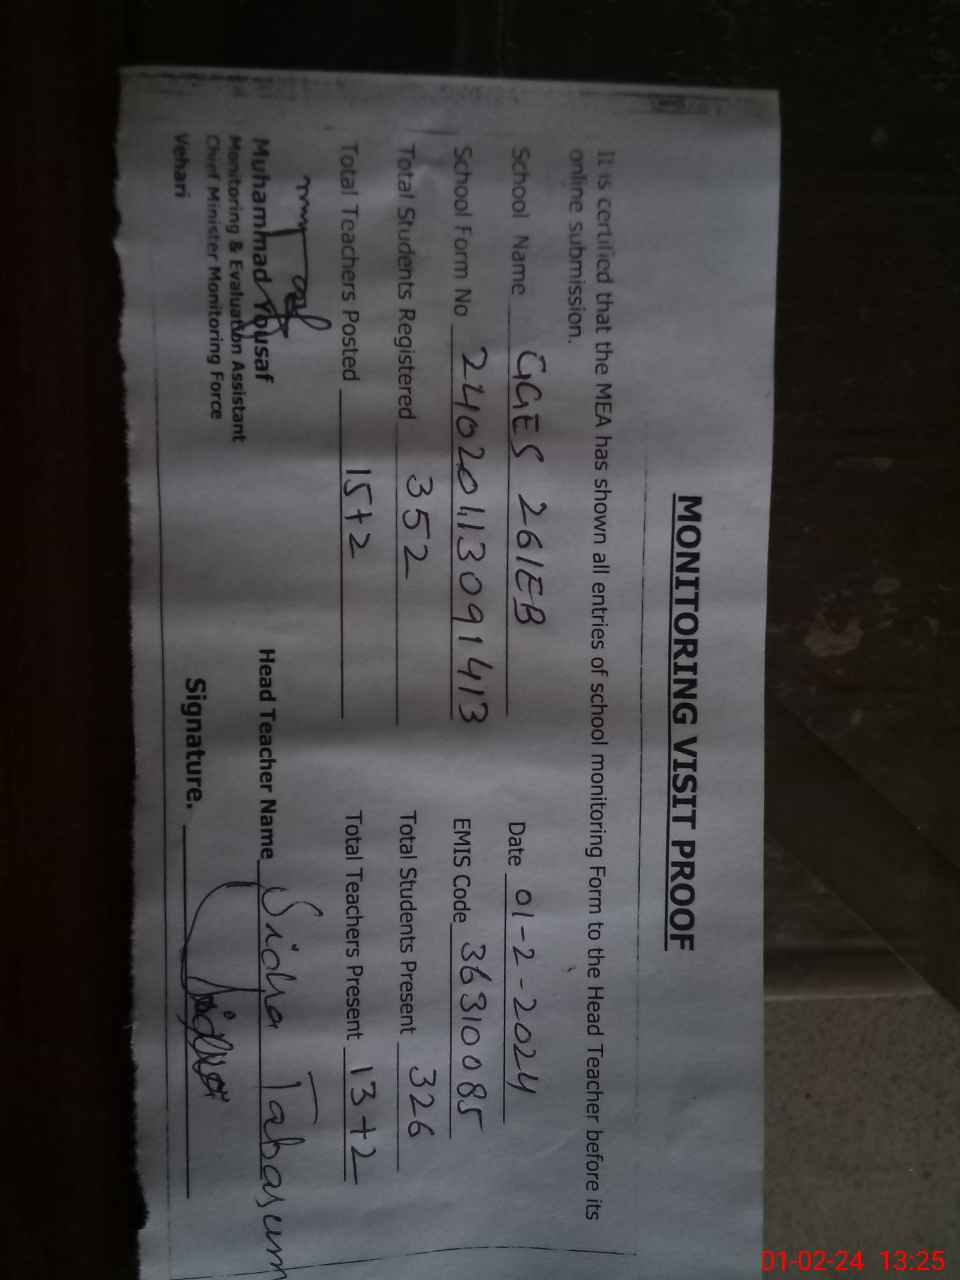 MONITORING VISIT PROOF
It is certified that the MEA has shown all entries of school monitoring Form to the Head Teacher before its
online submission.
School Name GGES 261EB Date 01-2-2024
School Form No 24020113091413 EMIS Code 36310085
Total Students Registered 352 Total Students Present 326
Total Teachers Posted 15+2 Total Teachers Present 13+2
Muhammad Yousaf
Monitoring & Evaluation Assistant
Chief Minister Monitoring Force
Vehari
Head Teacher Name Sidra Tabasum
Signature.
01-02-24 13:25